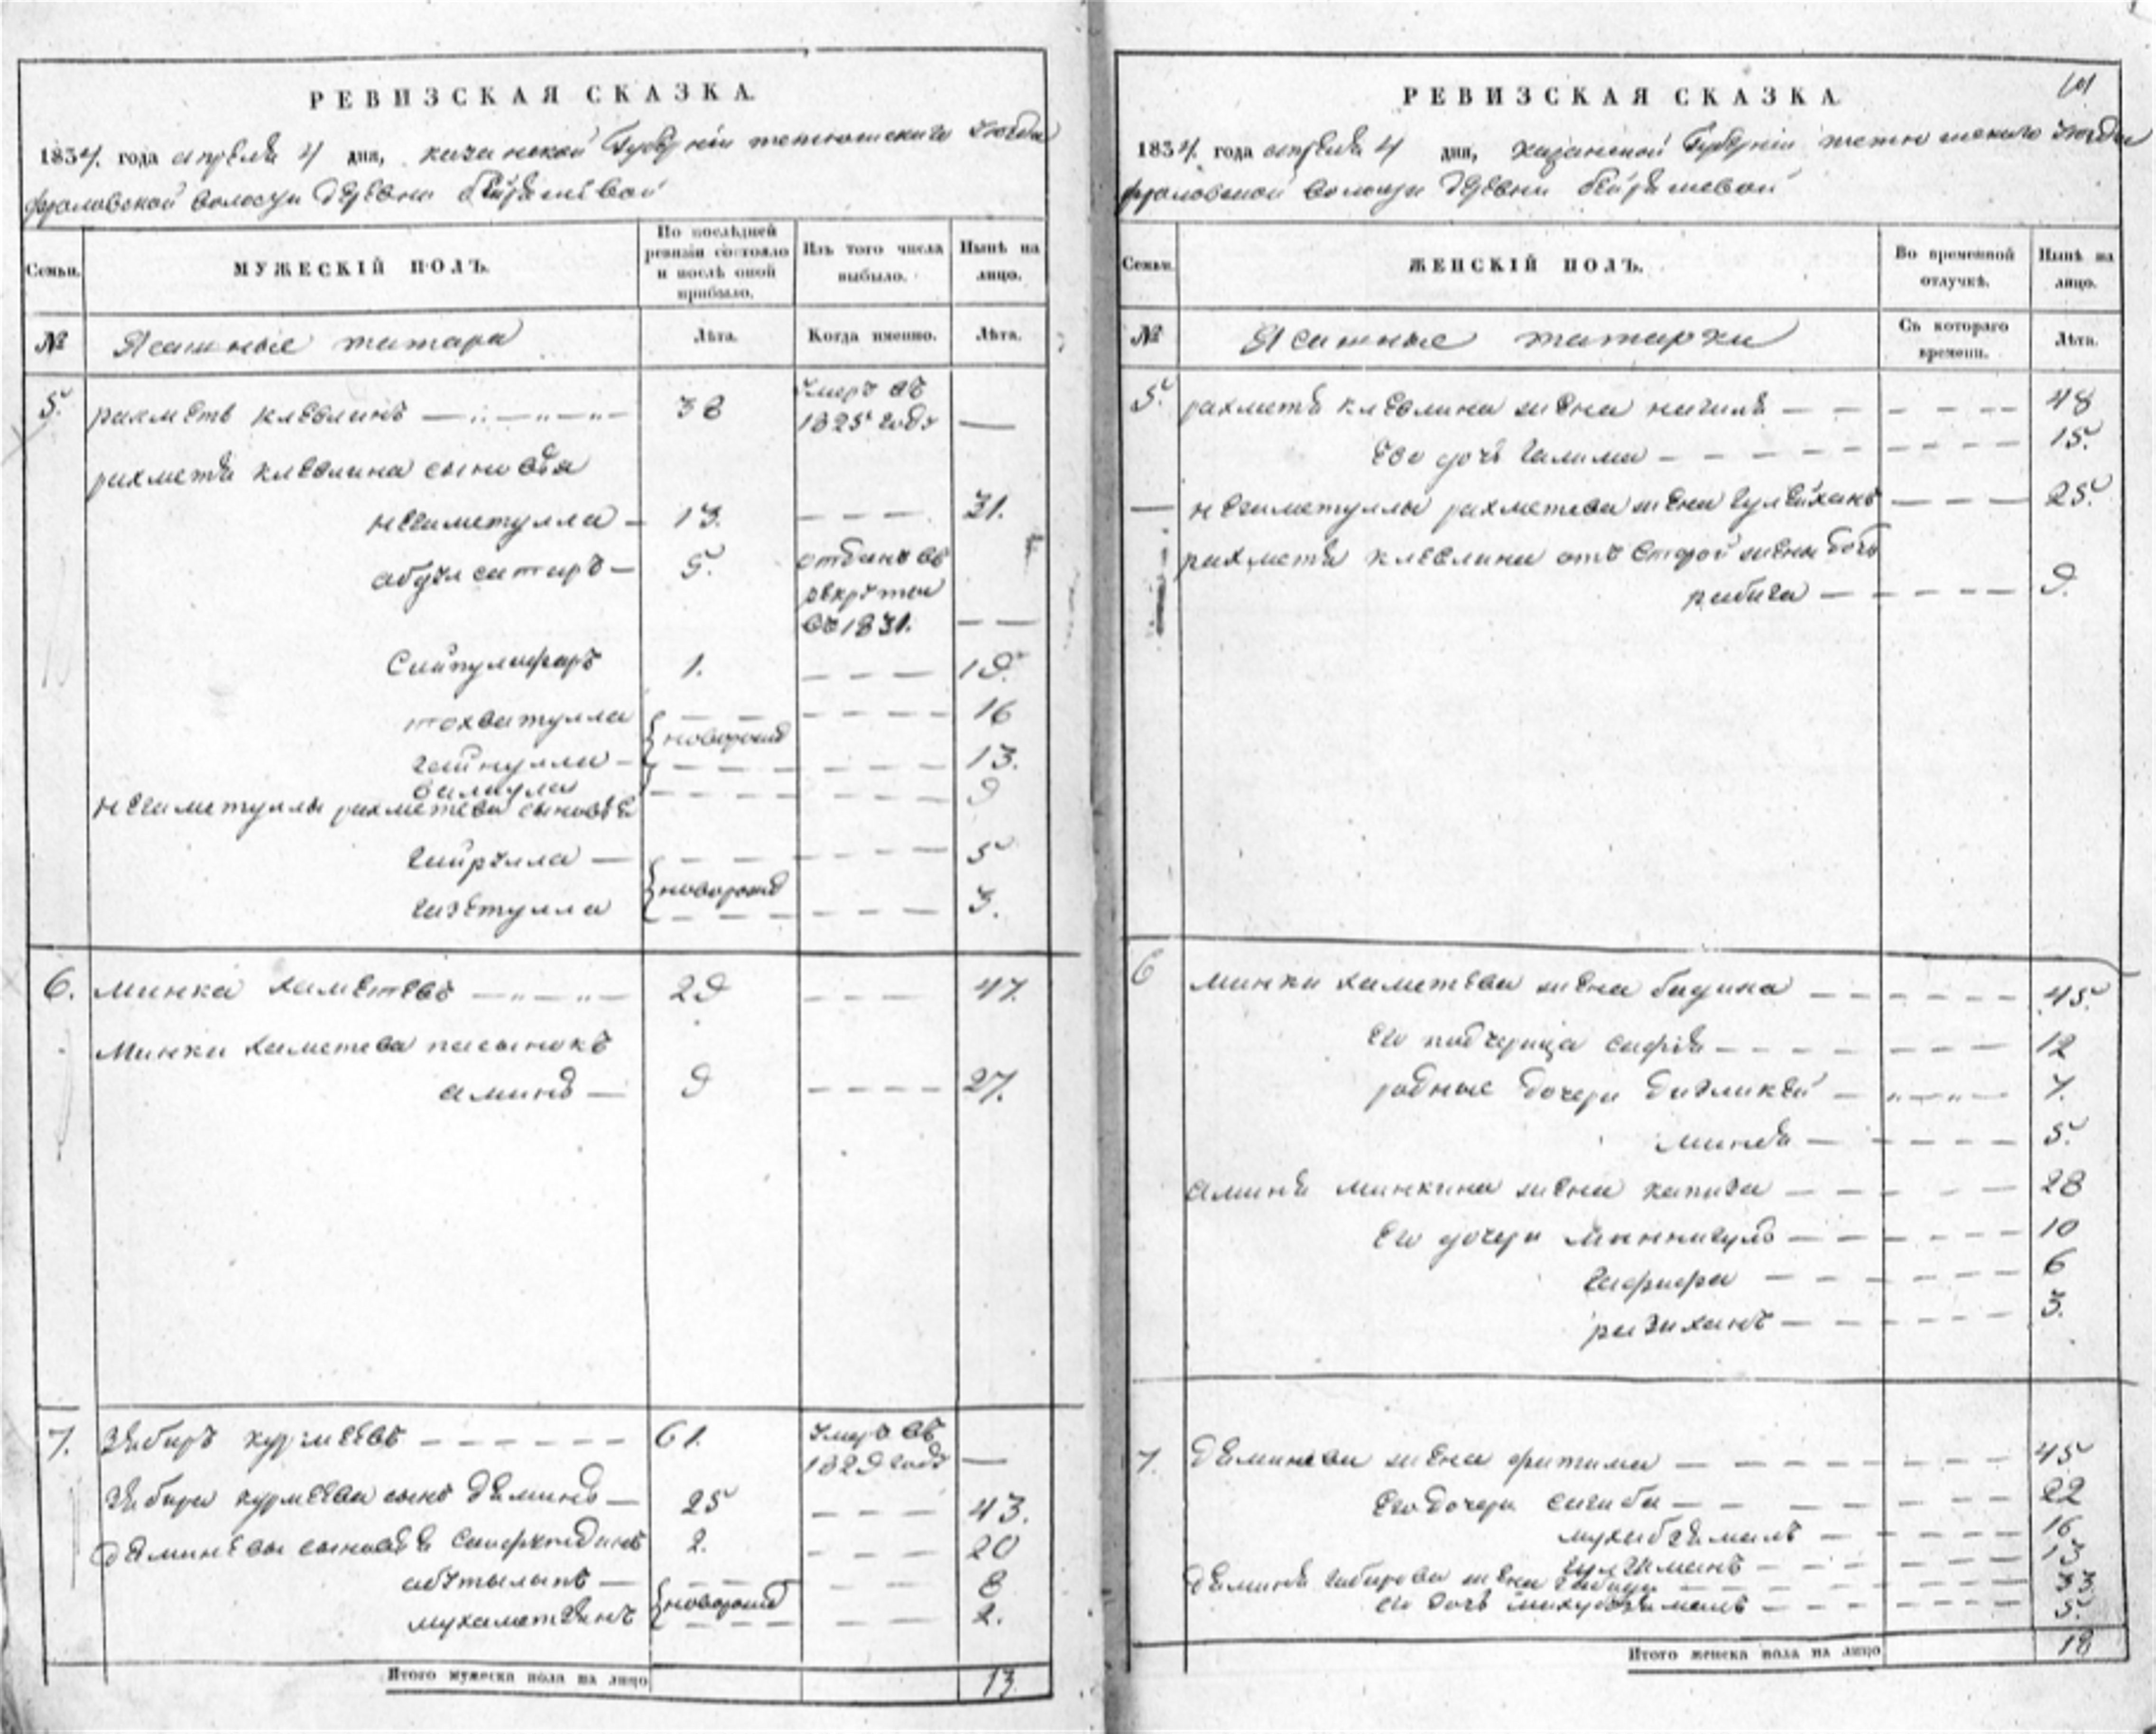 РЕВИЗСКАЯ СКАЗКА.
1834. года апреля 4 дня, казанской Губернии тетюшского Уезда
фроловской волости деревни бейряшевой
Семьи.
МУЖЕСКІЙ ПОЛЪ.
По послѣдней ревизіи состояло и послѣ оной прибыло.
Изъ того числа выбыло.
Нынѣ на лицо.
№
Ясашные татара
Лѣта.
Когда именно.
Лѣта.
5. рахметь клевлинъ 38 Умеръ въ 1825 году —
рахметя клевлина сыновья
негаметулла 13. 31.
абдулсатаръ 5. отданъ въ рекруты въ 1831. —
Сайпулмфаръ 1. 19.
тохватулла 16
новорожд
гайнулла 13.
валиулла 9
негаметуллы рахметева сыновья
гайрулла 5
новорожд
газетулла 3.
6. минка хаметевъ 29 47.
минки хаметева пасынокъ
аминь 9 27.
7. Зябиръ курмеевъ 61. Умеръ въ 1829 году —
Зябира курмеева сынъ Дяминь 25 43.
дяминевы сыновья Сайфутдинъ 2. 20
абтылапъ 8
новорожд
мухаметзянъ 2.
Итого мужеска пола на лицо 13
РЕВИЗСКАЯ СКАЗКА.
1834. года апреля 4 дня, казанской Губернии тетюшского Уезда
фроловской волости деревни бейряшевой
Семьи.
ЖЕНСКІЙ ПОЛЪ.
Во временной отлучкѣ.
Нынѣ на лицо.
№
Ясашные татарки
Съ котораго времени.
Лѣта.
5. рахметя клевлина жена нагиля 48
Ево дочь галима 15.
негаметуллы рахметева жена гулейханъ 25.
рахметя клевлина отъ второй жены дочь
рабига 9.
6 минки хаметева жена бадига 45.
Его подчерица сафия 12
родные дочери бизликей 7.
миндя 5.
аминя минкина жена капиза 28
Его дочери минлигуль 10
гафифа 6
разиханъ 3.
7. дяминева жена фатима 45
Его дочери сагиба 22
мухибзямалъ 16
гулзиманъ 13
дяминя габирова жена 33
его дочь 5.
Итого женска пола на лицо 18